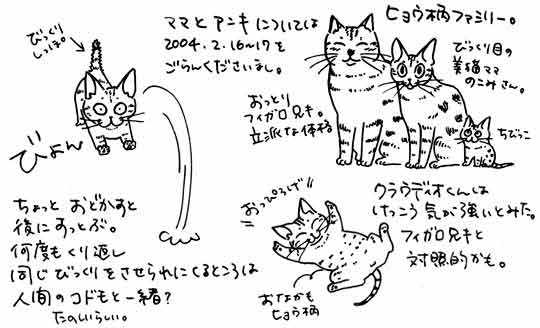 びっくり
しっぽ。
ママとアニキについては
2004.2.16~17を
ごらんくださいまし。
びよん
ちょっと おどかすと
後にすっとぶ。
何度もくり返し
同じびっくりをさせられにくるところは
人間のコドモと一緒?
たのしいらしい。
ヒョウ柄ファミリー。
びっくり目の
美猫ママ
のこみさん。
おっとり
フィガロ兄キ。
立派な体格
ちびっこ
おっぴろげ!!
クラウディオくんは
けっこう気が強いとみた。
フィガロ兄キと
対照的かも。
おなかも
ヒョウ柄